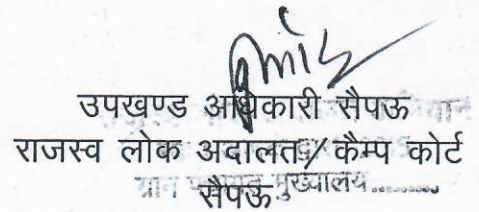 उपखण्ड अधिकारी सैपऊ
राजस्व लोक अदालत/कैम्प कोर्ट
सैपऊ मुख्यालय